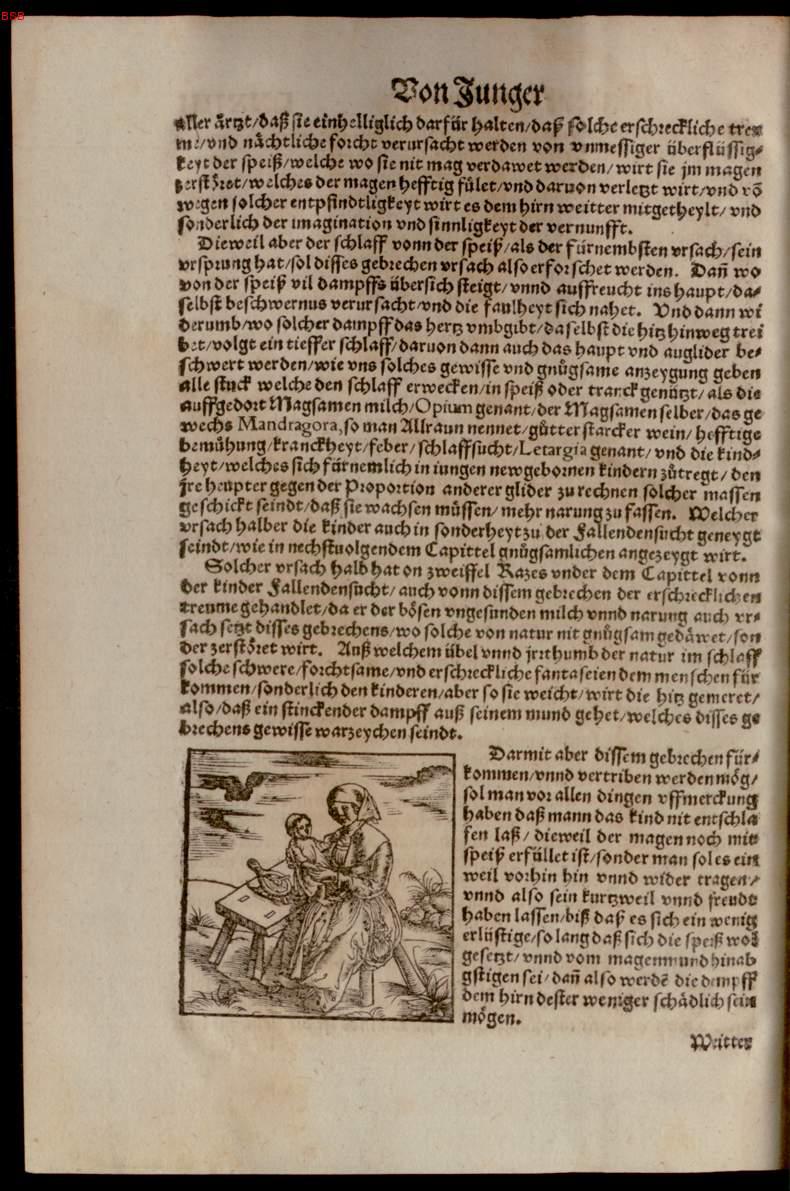 BSB
Von Junger
Aller ärtzt/daß sie einhelliglich darfür halten/daß solche erschreckliche treu⸗
me/vnd nächtliche forcht verursacht werden von vnmessiger überflüssig⸗
keyt der speiß/welche wo sie nit mag verdawet werden/wirt sie jm magen
zerstöret/welches der magen hefftig fület/vnd daruon verletzt wirt/vnd võ
wegen solcher entpfindtligkeyt wirt es dem hirn weitter mitgetheylt/vnd
sonderlich der imagination vnd sinnligkeyt der vernunfft.
Dieweil aber der schlaff vonn der speiß/als der fürnembsten vrsach/sein
vrsprung hat/sol disses gebrechen vrsach also erforschet werden. Dañ wo
von der speiß vil dampffs übersich steigt/vnnd auffreucht ins haupt/da⸗
selbst beschwernus verursacht/vnd die faulheyt sich nahet. Vnd dann wi
derumb/wo solcher dampff das hertz vmbgibt/daselbst die hitz hinweg trei
bet/volgt ein tieffer schlaff/daruon dann auch das haupt vnd auglider be⸗
schwert werden/wie vns solches gewisse vnd gnůgsame anzeygung geben
alle stuck welche den schlaff erwecken/in speiß oder tranck genützt/als die
auffgedort Magsamen milch/Opium genant/der Magsamen selber/das ge
wechs Mandragora, so man Allraun nennet/gůtter starcker wein/hefftige
bemühung/kranckheyt/feber/schlaffsucht/Letargia genant/vnd die kind⸗
heyt/welches sich fürnemlich in iungen newgebornen kindern zůtregt/den
jre heupter gegen der Proportion anderer glider zu rechnen solcher massen
geschickt seindt/daß sie wachsen müssen/mehr narung zu fassen. Welcher
vrsach halber die kinder auch in sonderheyt zu der Fallendensucht geneygt
seindt/wie in nechstuolgendem Capittel gnůgsamlichen angezeygt wirt.
Solcher vrsach halb hat on zweiffel Razes vnder dem Capittel vonn
der kinder Fallendensucht/auch vonn dissem gebrechen der erschrecklichen
treume gehandlet/da er der bösen vngesunden milch vnnd narung auch vr⸗
sach setzt disses gebrechens/wo solche von natur nit gnůgsam gedäwet/son
der zerstöret wirt. Auß welchem übel vnnd jrrthumb der natur im schlaff
solche schwere/forchtsame/vnd erschreckliche fantaseien dem menschen für
kommen/sonderlich den kinderen/aber so sie weicht/wirt die hitz gemeret/
also/daß ein stinckender dampff auß seinem mund gehet/welches disses ge
brechens gewisse warzeychen seindt.
Darmit aber dissem gebrechen für⸗
kommen/vnnd vertriben werden mög/
sol man vor allen dingen vffmerckung
haben daß mann das kind nit entschla
fen laß/dieweil der magen noch mit
speiß erfüllet ist/sonder man sol es ein
weil vorhin hin vnnd wider tragen/
vnnd also sein kurtzweil vnnd freudt
haben lassen/biß daß es sich ein wenig
erlüstige/so lang daß sich die speiß wol
gesetzt/vnnd vom magenmund hinab
gstigen sei/dañ also werdẽ die dempff
dem hirn dester weniger schädlich sein
mögen.
Weitter